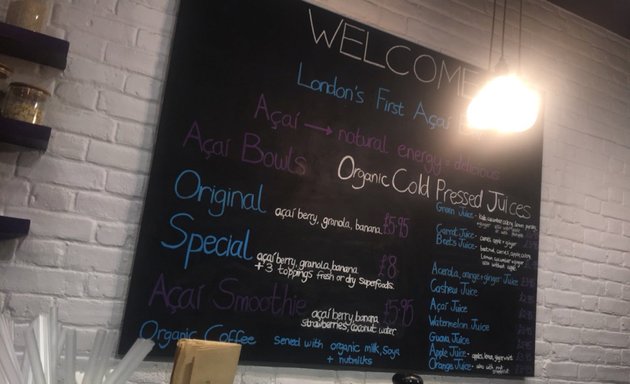 WELCOME
London's First Açaí
Açaí → natural energy + delicious
Açaí Bowls
Original açaí berry, granola, banana £5.95
Special açaí berry, granola, banana £8
+ 3 toppings fresh or dry superfoods.
Açaí Smoothie açaí berry, banana £5.95
strawberries, coconut water
Organic Coffee served with organic milk, Soya
+ nutmilks
Organic Cold Pressed Juices
Green Juice -
Carrot Juice - carrot, apple + ginger
Beets Juice - beetroot, carrot, apple,
Lemon, cucumber + ginger
Acerola, orange + ginger Juice
Cashew Juice
Açaí Juice
Watermelon Juice
Guava Juice
Apple Juice - apples, lemon, ginger
Orange Juice -